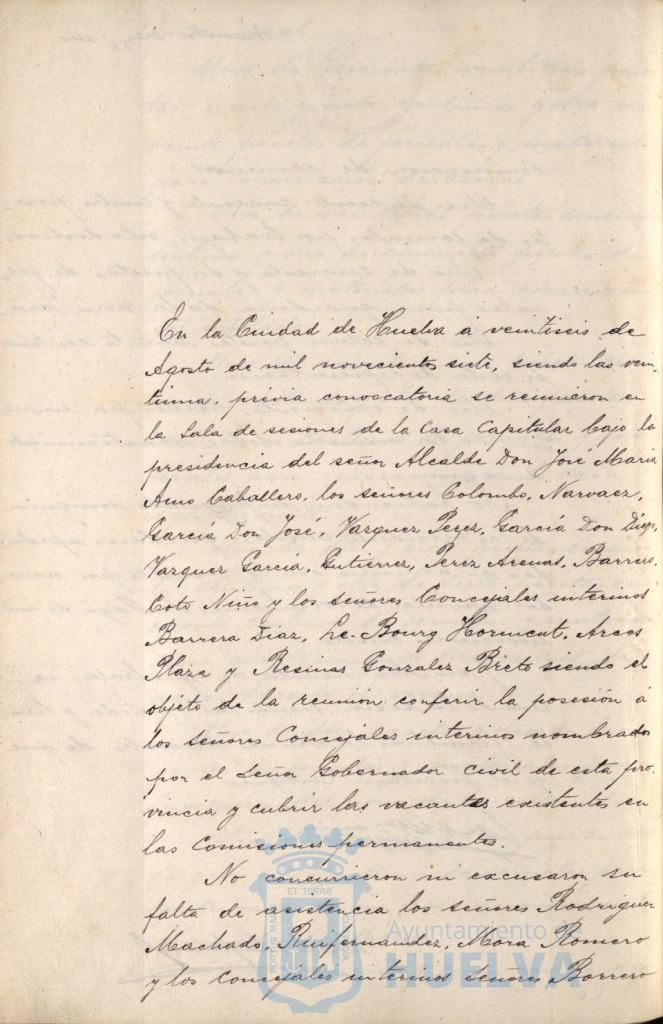 En la Ciudad de Huelva á veintiseis de
Agosto de mil novecientos siete, siendo las vein-
tiuna, prévia convocatoria se reunieron en
la Sala de sesiones de la Casa Capitular bajo la
presidencia del señor Alcalde Don José Maria
Amo Caballero, los señores Colombo, Narvaez,
García Don José, Vazquez Perez, García Don Diego,
Vazquez García, Gutierrez, Perez Arenas, Barrero,
Coto Niño y los señores Concejales interinos
Barrera Diaz, Le-Bourg Arcos
Plaza y Resinas Gonzalez Brieto siendo el
objeto de la reunión conferir la posesión á
los señores Concejales interinos nombrados
por el Señor Gobernador civil de esta pro-
vincia y cubrir las vacantes existentes en
las Comisiones permanentes.
No concurrieron ni excusaron su
falta de asistencia los señores Rodriguez
Machado, Ruifernandez, Mora Romero
y los concejales interinos señores Borrero
Ayuntamiento de
HUELVA
ET TERRÆ